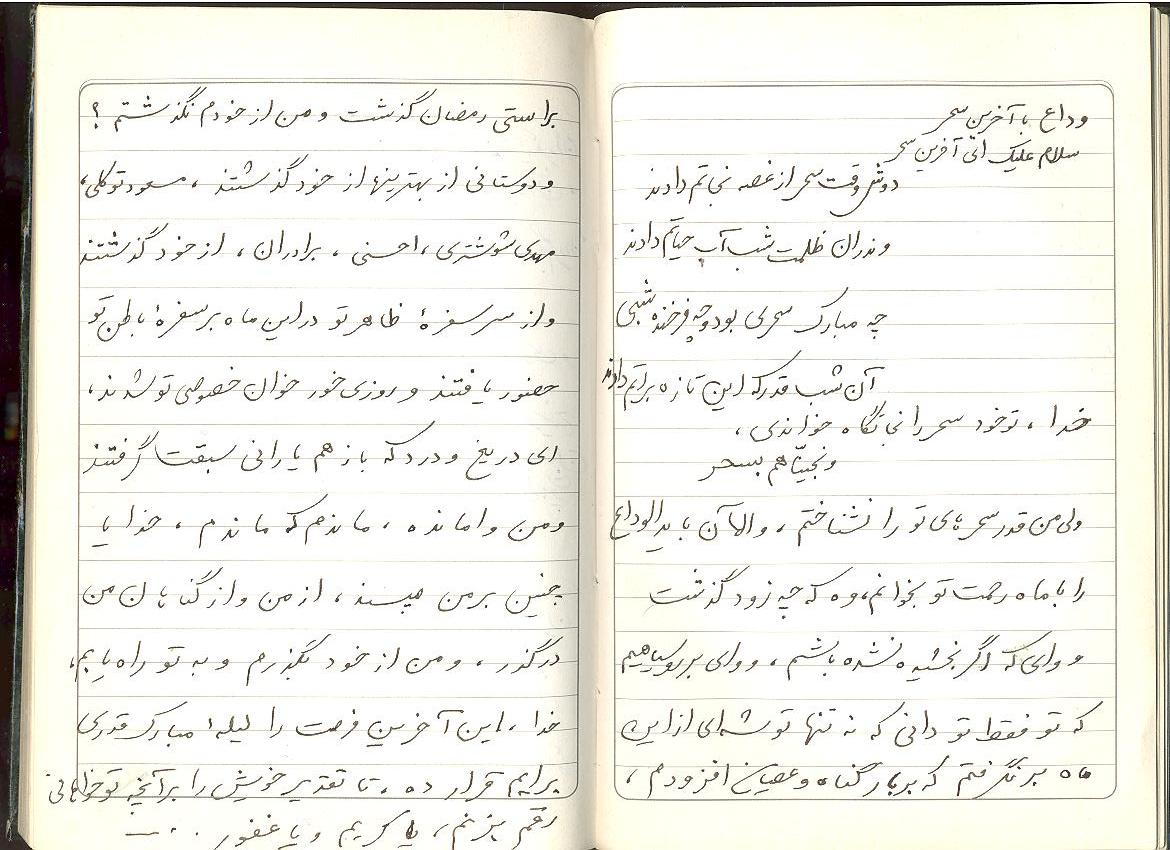 وداع با آخرین سحر
سلام علیک ای آخرین سحر
دوش وقت سحر از غصه نجاتم دادند
وندران ظلمت شب آب حیاتم دادند
چه مبارک سحری بود و چه فرخنده شبی
آن شب قدر که این تازه براتم دادند
خدا ، تو خود سحر را نجاتگاه خواندی ،
و نجیناهم بسحر
ولی من قدر سحرهای تو را نشناختم ، والاآن باید الوداع
را با ماه رحمت تو بخوانم ، وه که چه زود گذشت
و وای که اگر بخشیده نشده باشم ، و وای بر روسیاهیم
که تو فقط تو دانی که نه تنها توشه‌ای از این
ماه بر نگرفتم که بر بار گناه و عصیان افزودم ،
براستی رمضان گذشت و من از خودم نگذشتم ؟
و دوستانی از بهترینها از خود گذشتند ، مسعود توکلی ،
مهدی شوشتری ، احسنی ، برادران ، از خود گذشتند
و از سر سفرهٔ ظاهر تو در این ماه بر سفرهٔ باطن تو
حضور یافتند و روزی خور خوان خصوصی تو شدند ،
ای دریغ و درد که باز هم یارانی سبقت گرفتند
و من وامانده ، ماندم که ماندم ، خدایا
چنین بر من مپسند ، از من و از گناهان من
درگذر ، و من از خود بگذرم و به تو راه یابم ،
خدا ، این آخرین فرصت را لیلهٔ مبارک قدری
برایم قرار ده ، تا تقدیر خویش را بر آنچه تو خواهانی
رقم بزنم ، یا کریم و یا غفور ...